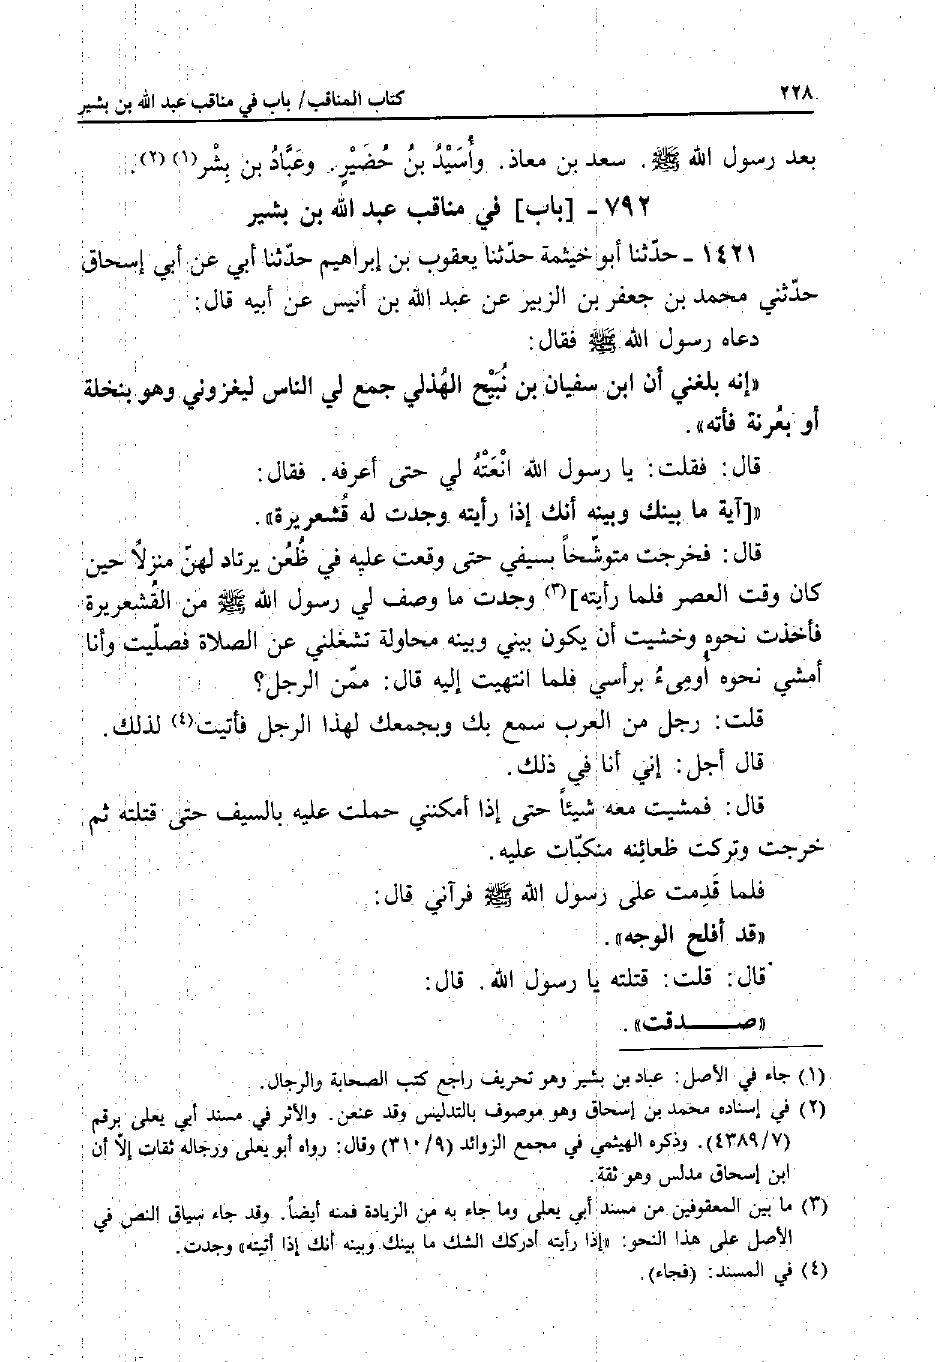 ٢٢٨ كتاب المناقب/ باب في مناقب عبد الله بن بشير
بعد رسول الله ﷺ. سعد بن معاذ. وأُسَيْدُ بنُ حُضَيْرٍ. وعَبَّادُ بن بِشْر(١)(٢).
٧٩٢ - [باب] في مناقب عبد الله بن بشير
١٤٢١ - حدّثنا أبو خيثمة حدّثنا يعقوب بن إبراهيم حدّثنا أبي عن أبي إسحاق
حدّثني محمد بن جعفر بن الزبير عن عبد الله بن أنيس عن أبيه قال:
دعاه رسول الله ﷺ فقال:
«إنه بلغني أن ابن سفيان بن نُبَيْح الهُذلي جمع لي الناس ليغزوني وهو بنخلة
أو بعُرنة فأته».
قال: فقلت: يا رسول الله انْعَتْهُ لي حتى أعرفه. فقال:
«[آية ما بينك وبينه أنك إذا رأيته وجدت له قُشعريرة».
قال: فخرجت متوشّحاً بسيفي حتى وقعت عليه في ظُعُن يرتاد لهنّ منزلاً حين
كان وقت العصر فلما رأيته](٣) وجدت ما وصف لي رسول الله ﷺ من القُشعريرة
فأخذت نحوه وخشيت أن يكون بيني وبينه محاولة تشغلني عن الصلاة فصلّيت وأنا
أمشي نحوه أُومِىءُ برأسي فلما انتهيت إليه قال: ممّن الرجل؟
قلت: رجل من العرب سمع بك وبجمعك لهذا الرجل فأتيت(٤) لذلك.
قال أجل: إني أنا في ذلك.
قال: فمشيت معه شيئاً حتى إذا أمكنني حملت عليه بالسيف حتى قتلته ثم
خرجت وتركت ظعائنه منكبّات عليه.
فلما قَدِمت على رسول الله ﷺ فرآني قال:
«قد أفلح الوجه».
قال: قلت: قتلته يا رسول الله. قال:
«صـــــدقت».
(١) جاء في الأصل: عباد بن بشير وهو تحريف راجع كتب الصحابة والرجال.
(٢) في إسناده محمد بن إسحاق وهو موصوف بالتدليس وقد عنعن. والأثر في مسند أبي يعلى برقم
(٤٣٨٩/٧). وذكره الهيثمي في مجمع الزوائد (٣١٠/٩) وقال: رواه أبو يعلى ورجاله ثقات إلاّ أن
ابن إسحاق مدلس وهو ثقة.
(٣) ما بين المعقوفين من مسند أبي يعلى وما جاء به من الزيادة فمنه أيضاً. وقد جاء سياق النص في
الأصل على هذا النحو: «إذا رأيته أدركك الشك ما بينك وبينه أنك إذا أتيته» وجدت.
(٤) في المسند: (فجاء).